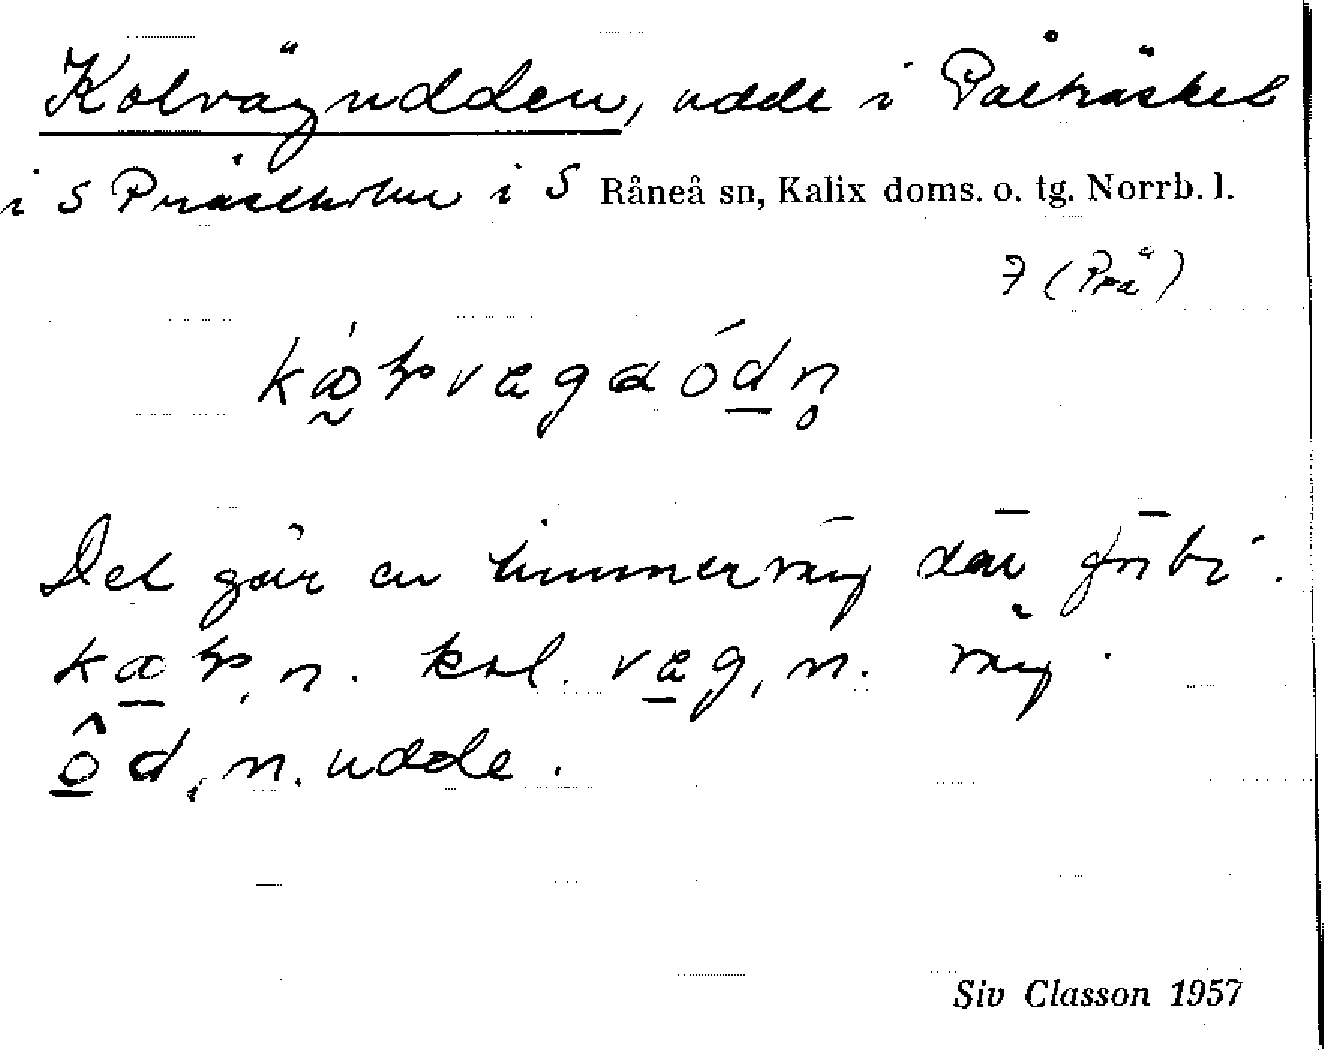 Kolvägudden, udde i Pålträsket
i S Prästholm i S Råneå sn, Kalix doms. o. tg. Norrb. l.
7 (Prä)
Det går en timmerväg där förbi.
n. kol. væg, n. väg.
ôd, n. udde.
Siv Classon 1957